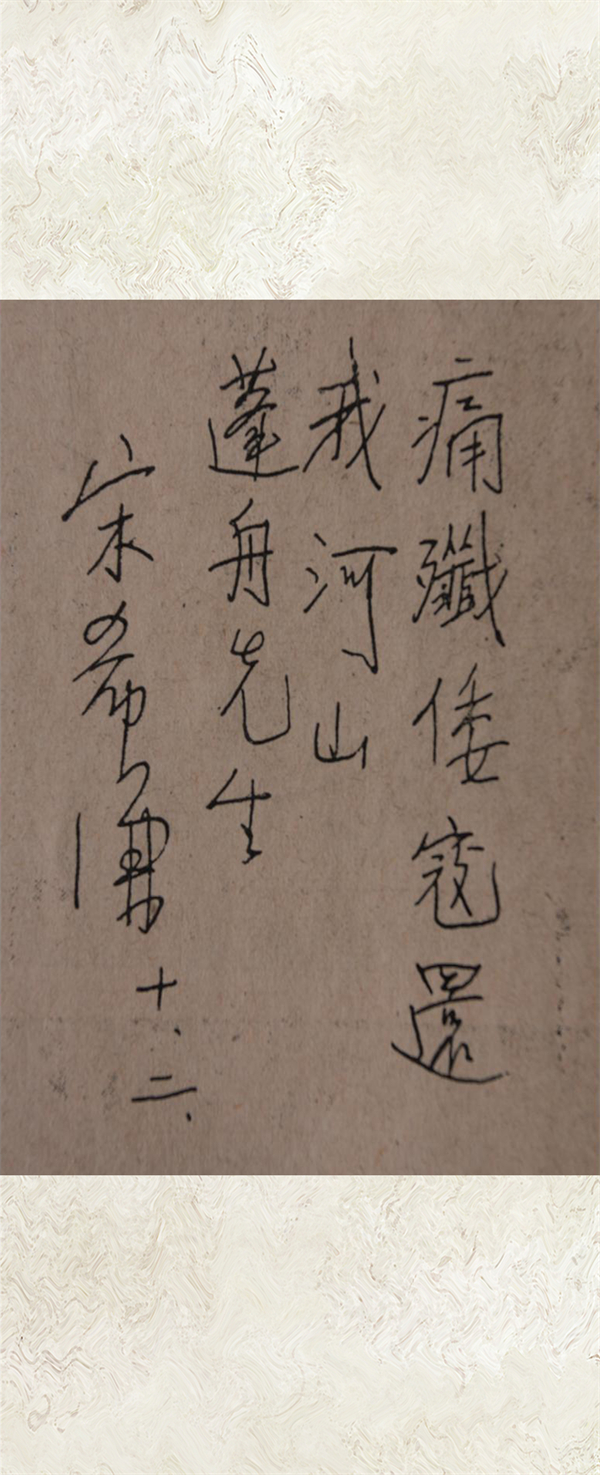 痛殲倭寇還
我河山
蓬舟先生
宋希濂 十、二、